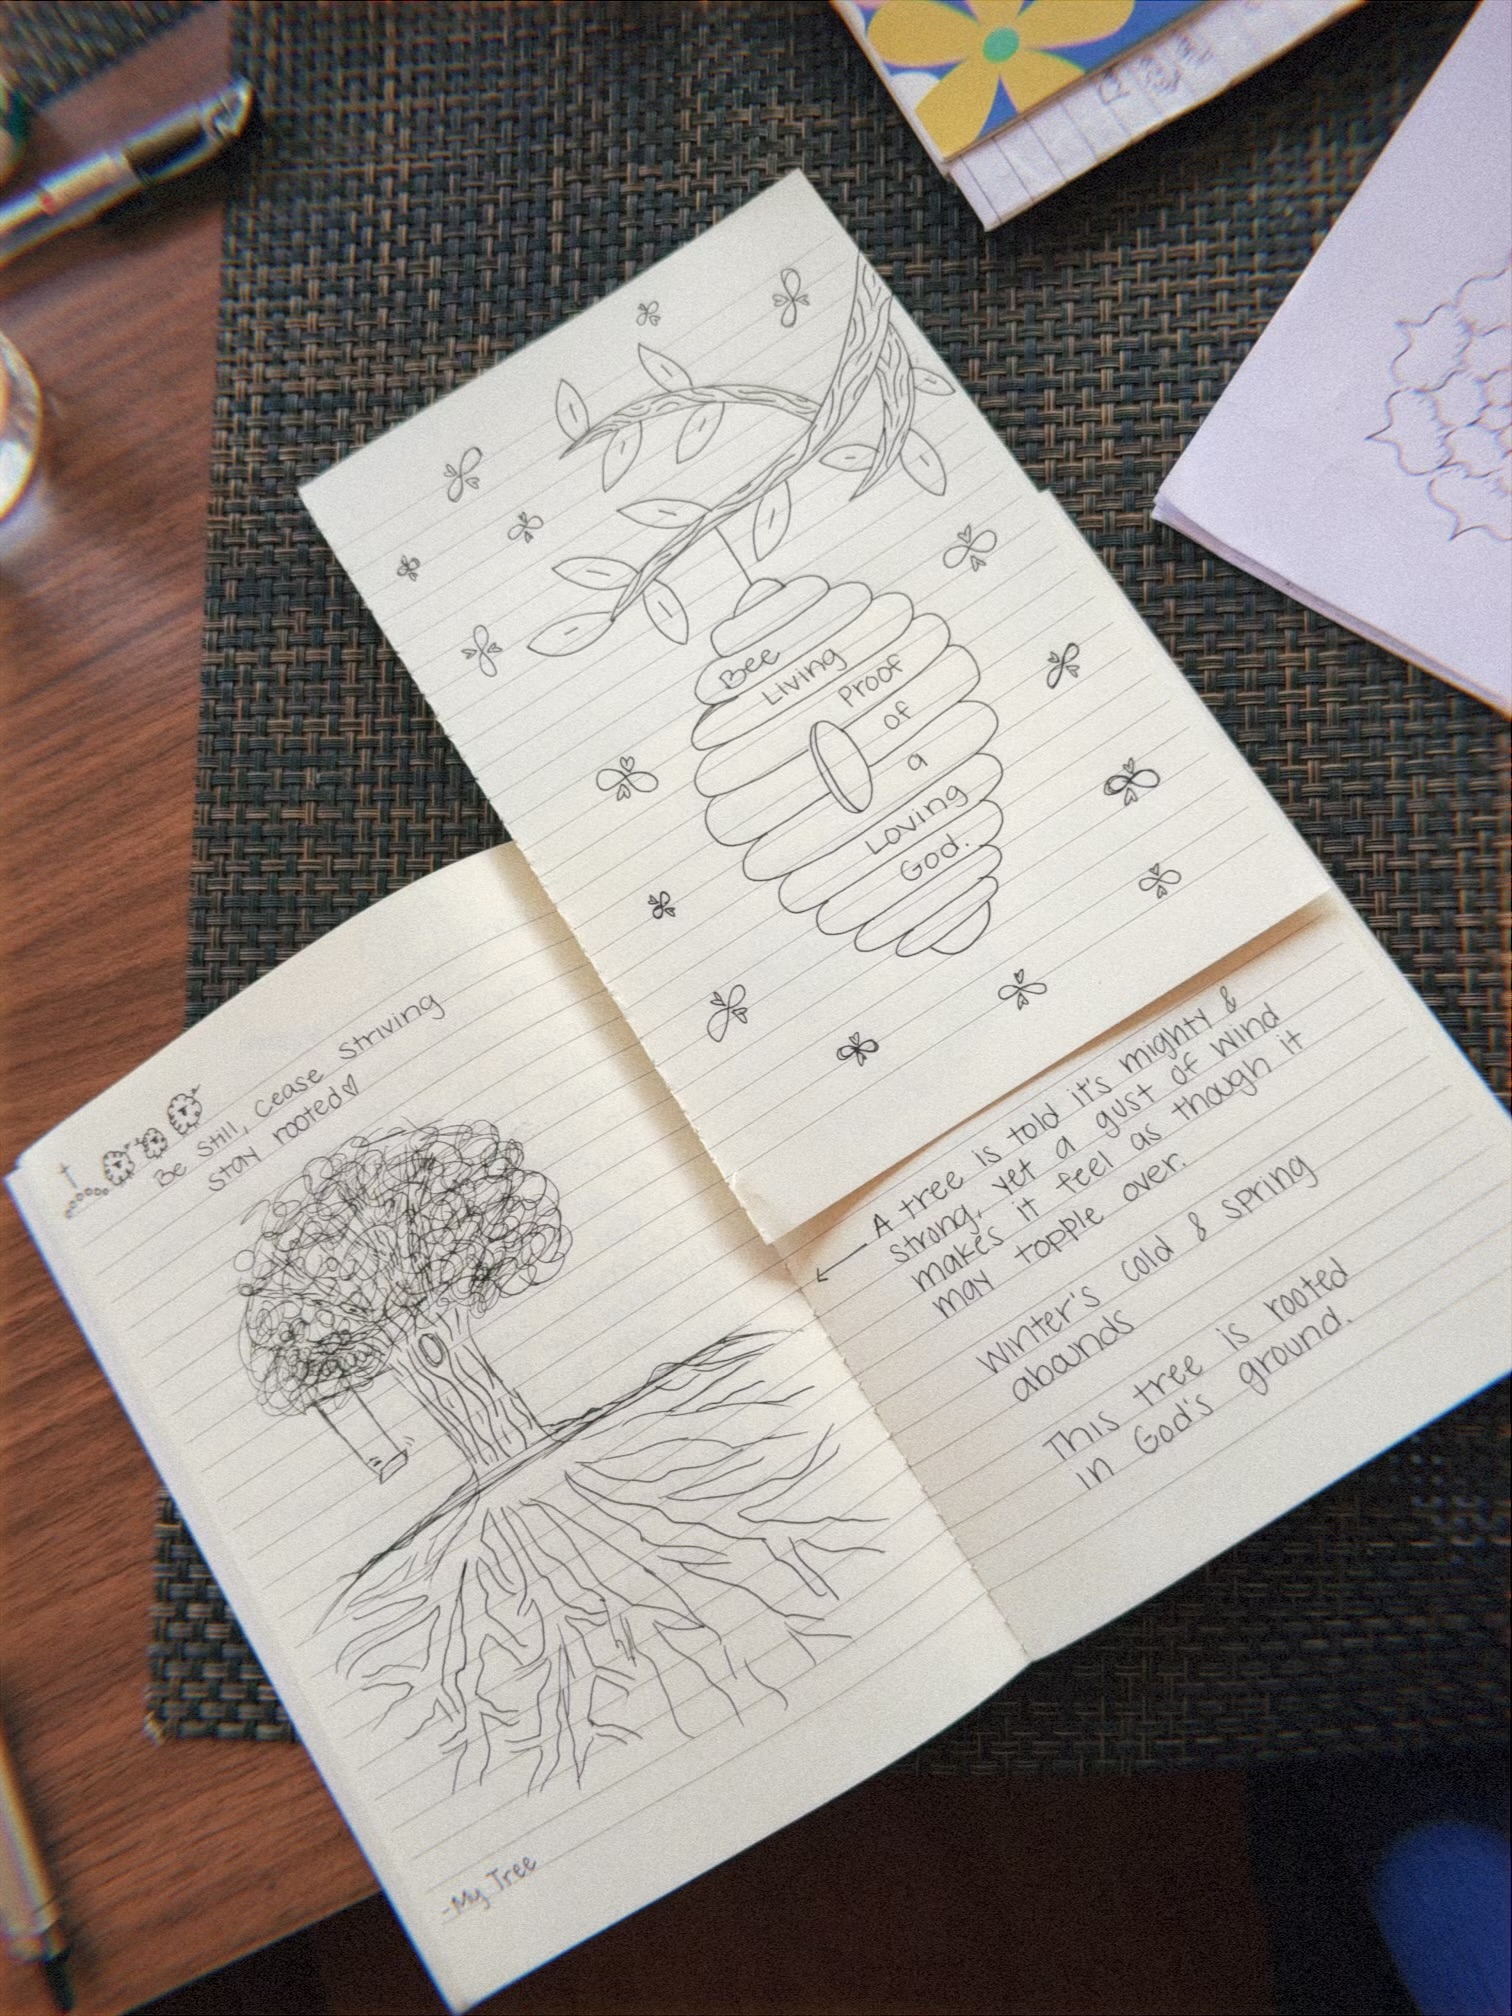 Bee
Living
Proof
of
a
Loving
God.
Be still, cease striving
stay rooted♡
-My Tree
A tree is told it's mighty &
strong, yet a gust of wind
makes it feel as though it
may topple over.
Winter's cold & spring
abounds
This tree is rooted
in God's ground.